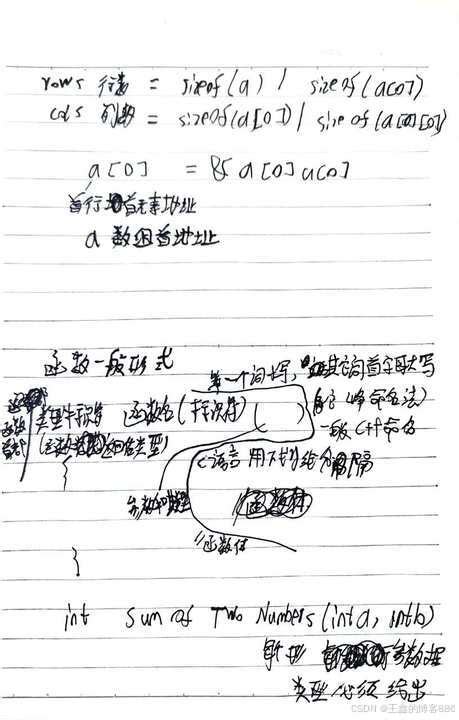 rows 行数 = sizeof(a) / sizeof(a[0])
cols 列数 = sizeof(a[0]) / sizeof(a[0][0])
a[0] = & a[0][0]
首行 首元素地址
a 数组首地址
函数一般形式
第一个词小写, 其它词首字母大写
类型标识符 函数名(标识符) ( ) 峰命名法)
(函数 返回值类型) 一般C++命名
{
C语言 用下划线给分隔
参数和类型
函数体
//函数体
}
int Sum of Two Numbers (int a, int b)
参数
类型必须给出
CSDN @王鑫的博客886